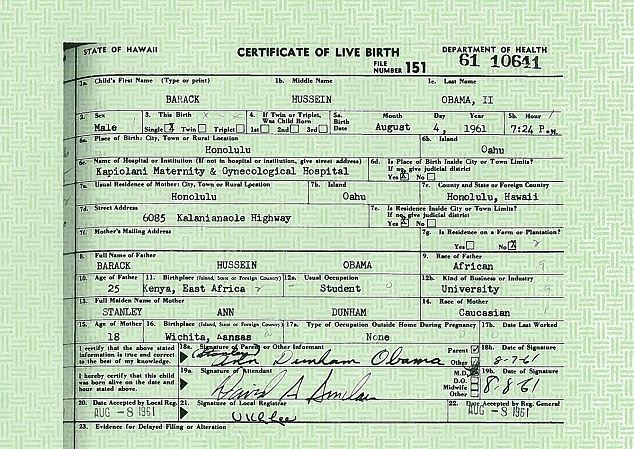 STATE OF HAWAII CERTIFICATE OF LIVE BIRTH DEPARTMENT OF HEALTH
FILE NUMBER 151 61 10641
1a. Child's First Name (Type or print) 1b. Middle Name 1c. Last Name
BARACK HUSSEIN OBAMA, II
2. Sex 3. This Birth 4. If Twin or Triplet, Was Child Born 5a. Birth Date Month Day Year 5b. Hour
Male Single X Twin Triplet 1st 2nd 3rd August 4, 1961 7:24 P.M.
6a. Place of Birth: City, Town or Rural Location 6b. Island
Honolulu Oahu
6c. Name of Hospital or Institution (If not in hospital or institution, give street address) 6d. Is Place of Birth Inside City or Town Limits? If no, give judicial district
Kapiolani Maternity & Gynecological Hospital Yes X No
7a. Usual Residence of Mother: City, Town or Rural Location 7b. Island 7c. County and State or Foreign Country
Honolulu Oahu Honolulu, Hawaii
7d. Street Address 7e. Is Residence Inside City or Town Limits? If no, give judicial district
6085 Kalanianaole Highway Yes X No
7f. Mother's Mailing Address 7g. Is Residence on a Farm or Plantation?
Yes No X
8. Full Name of Father 9. Race of Father
BARACK HUSSEIN OBAMA African 9
10. Age of Father 11. Birthplace (Island, State or Foreign Country) 12a. Usual Occupation 12b. Kind of Business or Industry
25 Kenya, East Africa Student 0 University 9
13. Full Maiden Name of Mother 14. Race of Mother
STANLEY ANN DUNHAM Caucasian
15. Age of Mother 16. Birthplace (Island, State or Foreign Country) 17a. Type of Occupation Outside Home During Pregnancy 17b. Date Last Worked
18 Wichita, Kansas None
I certify that the above stated information is true and correct to the best of my knowledge. 18a. Signature of Parent or Other Informant Parent Other 18b. Date of Signature
(Stanley) Ann Dunham Obama 8-7-61
I hereby certify that this child was born alive on the date and hour stated above. 19a. Signature of Attendant M.D. D.O. Midwife Other 19b. Date of Signature
David A Sinclair 8-8-61
20. Date Accepted by Local Reg. 21. Signature of Local Registrar 22. Date Accepted by Reg. General
AUG -8 1961 U K Lee AUG -8 1961
23. Evidence for Delayed Filing or Alteration